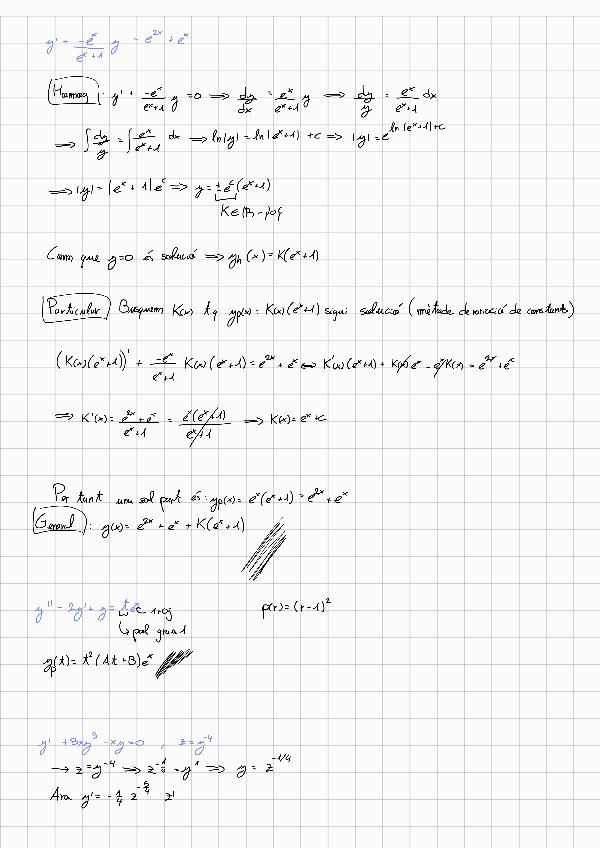 y' + -eˣ/(eˣ+1) y = e²ˣ + eˣ
Homog: y' + -eˣ/(eˣ+1) y = 0 ⟹ dy/dx = eˣ/(eˣ+1) y ⟹ dy/y = eˣ/(eˣ+1) dx
⟹ ∫ dy/y = ∫ eˣ/(eˣ+1) dx ⟹ ln|y| = ln|eˣ+1| + c ⟹ |y| = e^(ln|eˣ+1|+c)
⟹ |y| = |eˣ+1| eᶜ ⟹ y = ± eᶜ (eˣ+1)
K ∈ ℝ - {0}
Com que y=0 és solució ⟹ yₕ(x) = K(eˣ+1)
Particular Busquem K(x) tq yp(x) = K(x)(eˣ+1) sigui solució (mètode de variació de constants)
(K(x)(eˣ+1))' + -eˣ/(eˣ+1) K(x)(eˣ+1) = e²ˣ + eˣ ⟺ K'(x)(eˣ+1) + K(x)eˣ - eˣK(x) = e²ˣ + eˣ
⟹ K'(x) = (e²ˣ + eˣ)/(eˣ+1) = eˣ(eˣ+1)/(eˣ+1) ⟹ K(x) = eˣ + c
Per tant una sol part és: yp(x) = eˣ(eˣ+1) = e²ˣ + eˣ
General: y(x) = e²ˣ + eˣ + K(eˣ+1)
y'' - 2y' + y = t p(r) = (r-1)²
↳ pol grau 1
yp(t) = t²(At+B)eˣ
y' + 8xy³ - xy = 0 , z = y⁻⁴
→ z = y⁻⁴ ⟹ z^(-1/4) = y¹ ⟹ y = z^(-1/4)
Ara y' = -1/4 z^(-5/4) z'